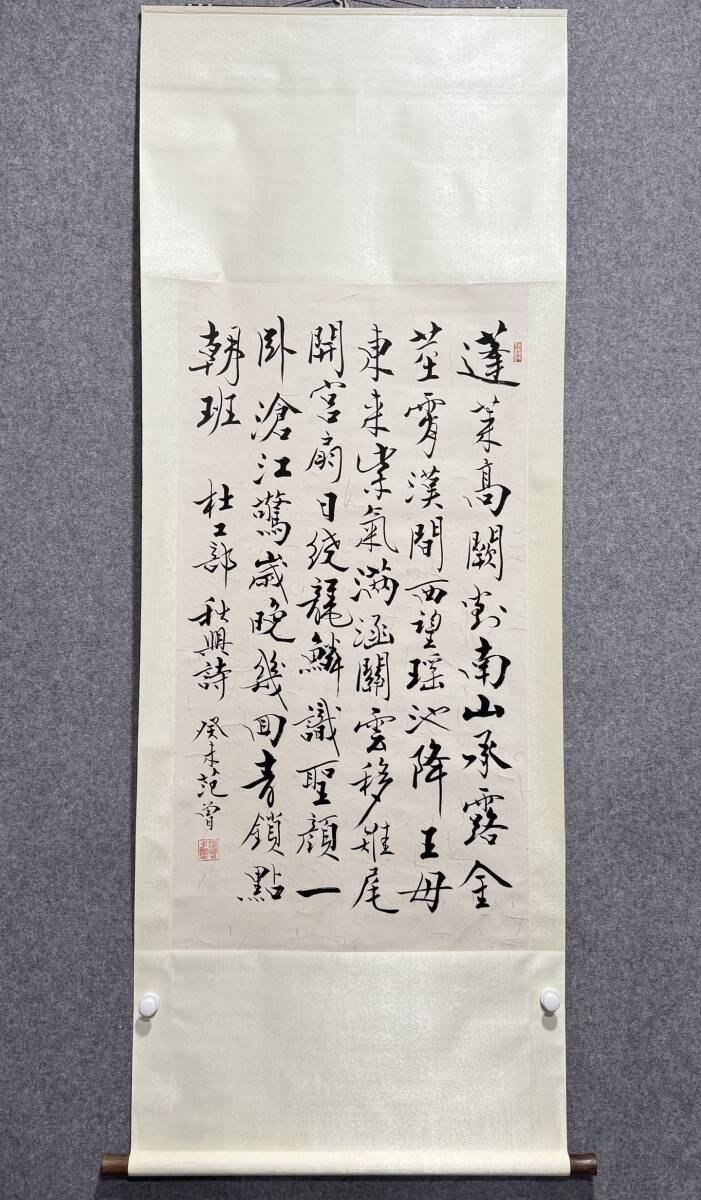 蓬莱高闕對南山承露金
莖霄漢間西望瑶池降王母
東来紫氣滿涵關雲移雉尾
開宮扇日绕龍鱗識聖顔一
卧滄江驚歲晚幾回青鎖點
朝班 杜工部秋興詩 癸未范曾